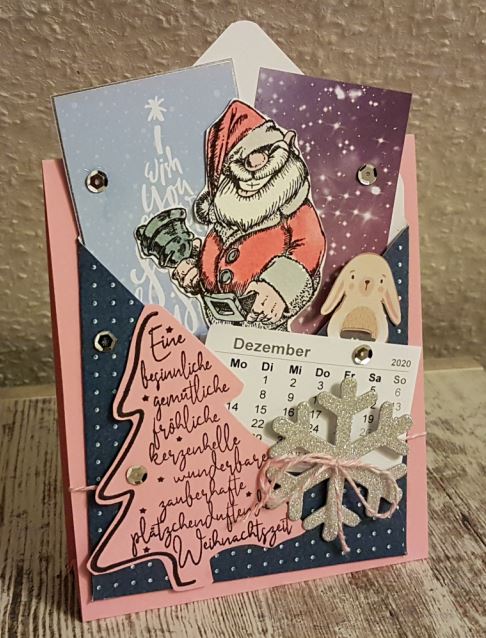 I
wish
you
Dezember 2020
Mo Di Mi Do Fr Sa So
1 2 3 4 5 6
7 8 9 10 13
14 15 16
21 22
Eine
besinnliche
gemütliche
fröhliche
kerzenhelle
wunderbare
zauberhafte
plätzchenduftende
Weihnachtszeit